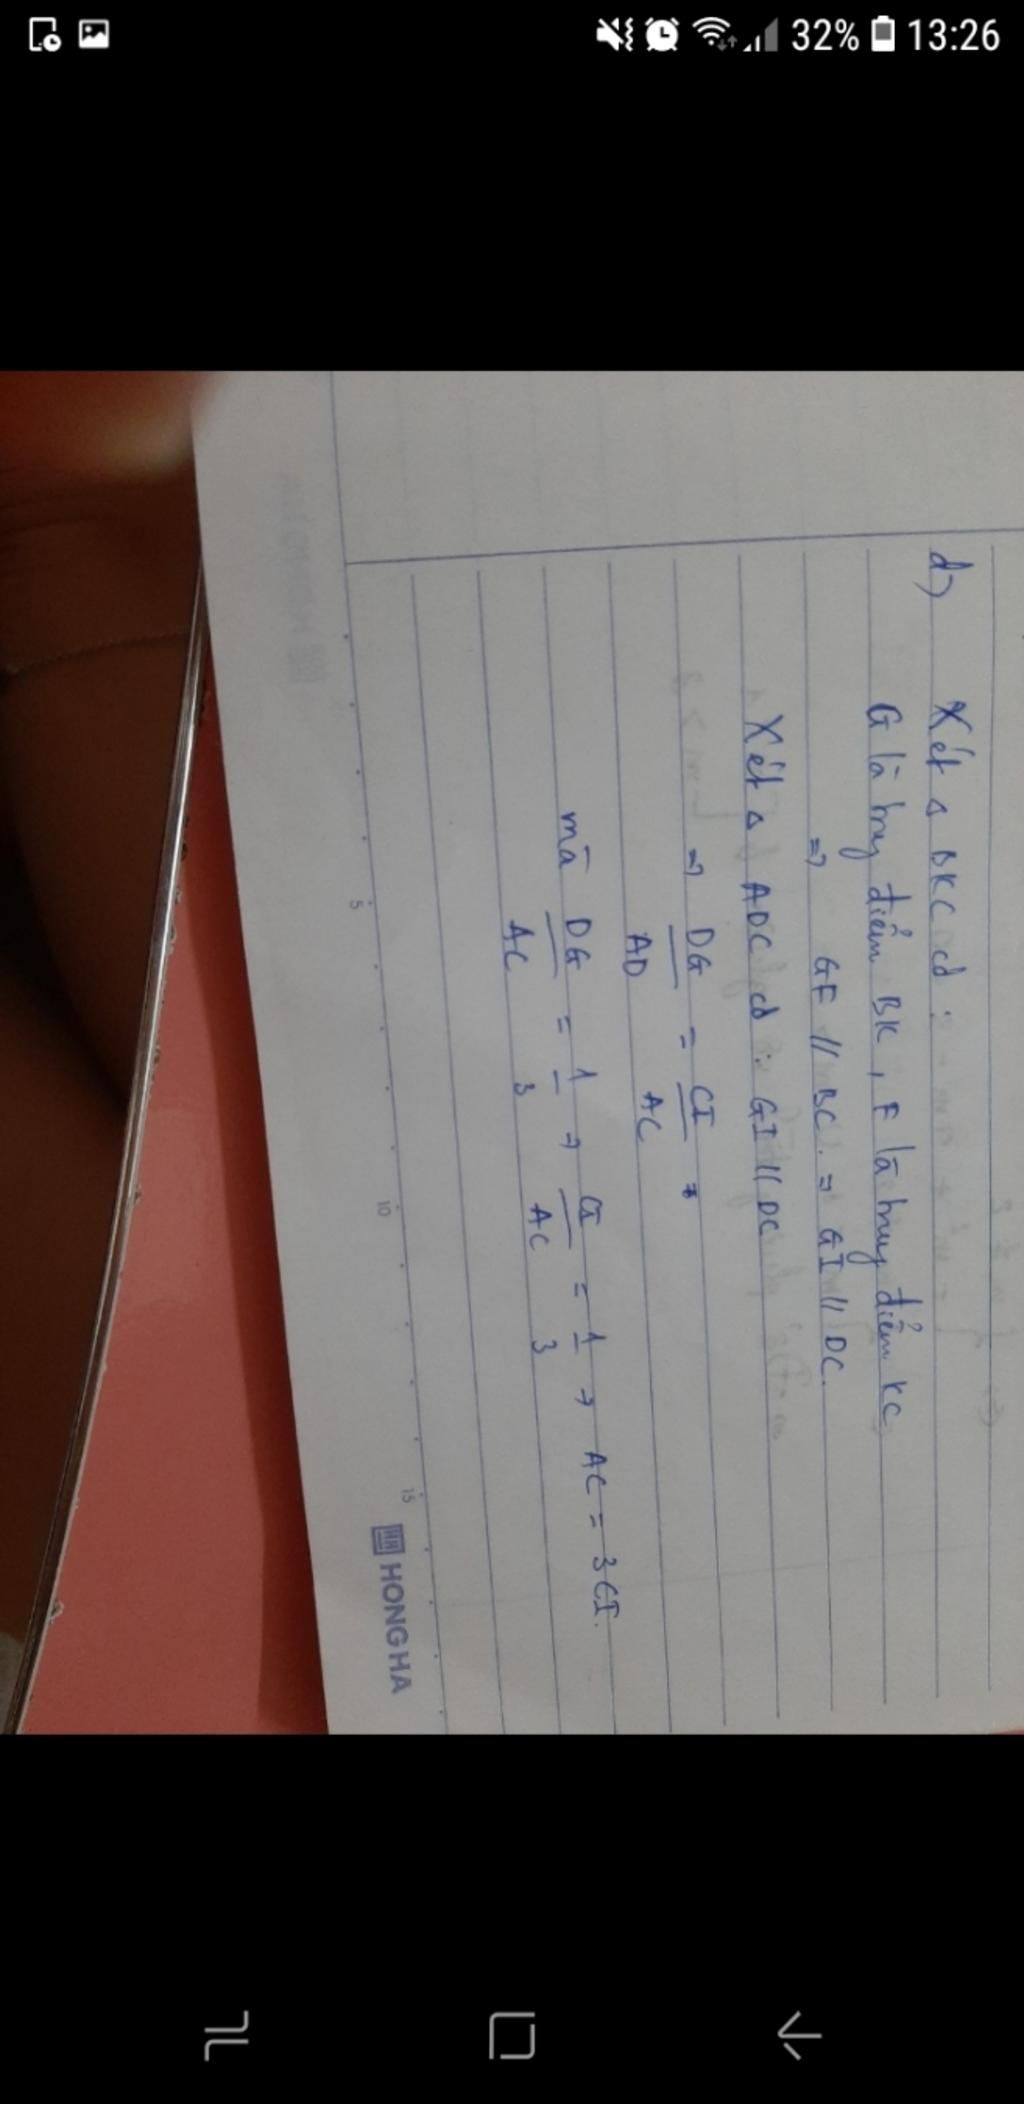 32% 13:26
d) Xét Δ BKC có :
G là trung điểm BK, F là trung điểm KC
=> GF // BC. => GI // DC.
Xét Δ ADC có : GI // DC
=> DG/AD = CI/AC
mà DG/AC = 1/3 → CI/AC = 1/3 → AC = 3CI.
5 10 15
HONG HA